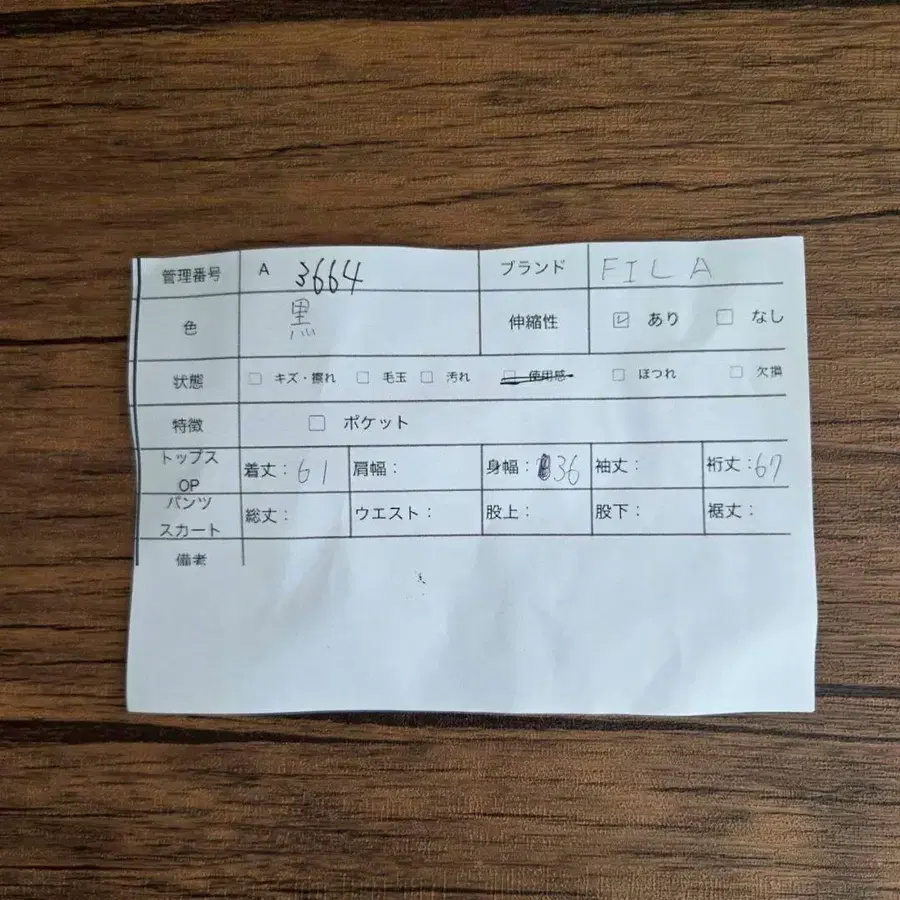 管理番号 A 3664 ブランド FILA
色 黒 伸縮性 ☑ あり ☐ なし
状態 ☐ キズ・擦れ ☐ 毛玉 ☐ 汚れ ☐ 使用感 ☐ ほつれ ☐ 欠損
特徴 ☐ ポケット
トップス OP 着丈：61 肩幅： 身幅：36 袖丈： 裄丈：67
パンツ スカート 総丈： ウエスト： 股上： 股下： 裾丈：
備考